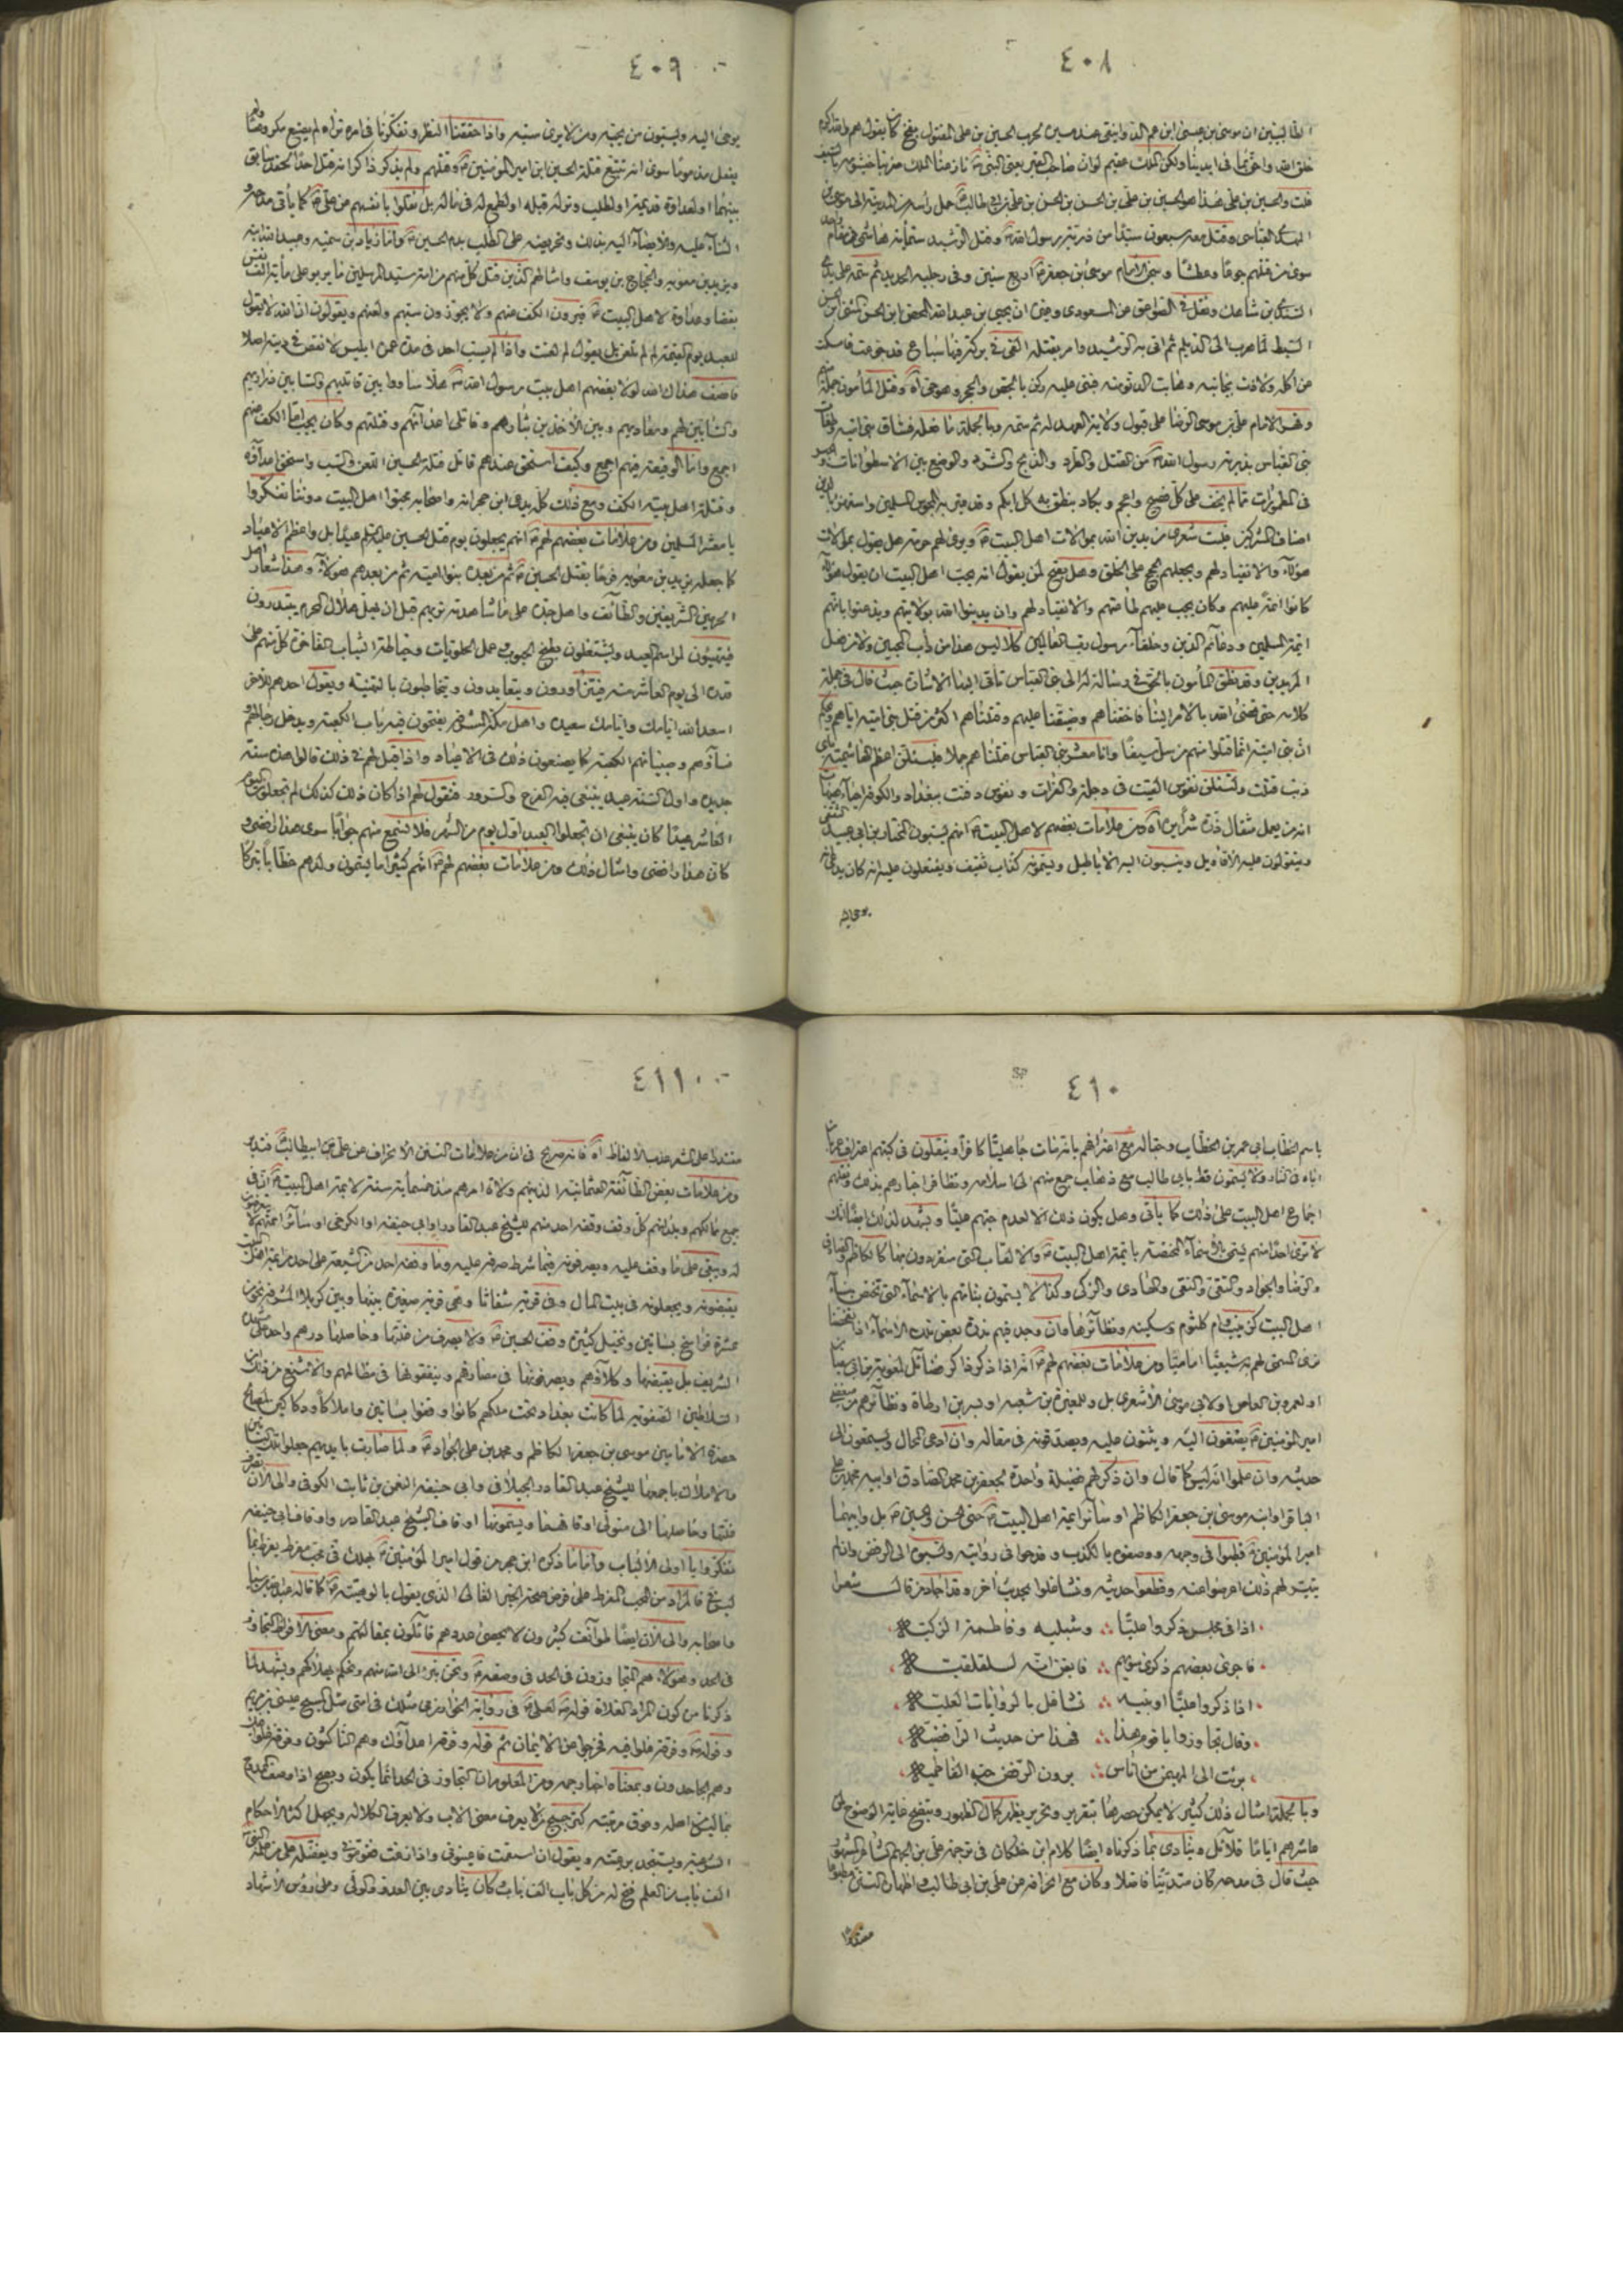 ٤٠٨
الطالبيين ان موسى بن عيسى ابن عم الذ وابنى عند حسين لحرب الحسين بن على المقتول بفخ كان يقول هم والله اكرم
خلق الله واحق بما فى ايدينا ولكن الملك عقيم لو ان صاحب القبر يعنى النبى نازعنا الملك ضربنا خيشومه بالسيف
قلت والحسين بن على هذا هو الحسين بن على بن الحسن بن الحسن بن الحسن بن على بن ابى طالب حمل راسه من المدينة الى موسى بن
المهدى العباسى وقتل معه سبعون سيدا من ذرية رسول الله وقتل الرشيد ستمأية هاشمى فى مقام واحد
سوى من قتلهم جوعا وعطشا وسجن الامام موسى بن جعفر اربع سنين وفى رجليه الحديد ثم سمه على يدى
السندى بن شاهك ونقل فى الصواعق عن المسعودى وغيره ان يحيى بن عبد الله المحض ابن الحسن المثنى ابن الحسن
السبط لما هرب الى الديلم ثم اتى به الرشيد وامر بقتله القى فى بركة فيها سباع قد جوعت فامسكت
عن اكله ولاذت بجانبه وهابت الدنو منه فبنى عليه ركن بالجص والحجر وهو حى اه وقتل المأمون جملة منهم
وقهر الامام على بن موسى الرضا على قبول ولاية العهد له ثم سمه وبالجملة ما فعله فساق بنى امية وطغاة
بنى العباس بذرية رسول الله من القتل والطرد والذبح والتشريد والوضع بين الاسطوانات والحبس
فى المطمورات مما لم يخف على كل فصيح واعجم ويكاد ينطق به كل ابكم
اصناف المشركين فليت شعرى من يدين الله بموالات اهل البيت ويرى لهم حرمة هل يقول بموالات
هؤلاء والانقياد لهم ويجعلهم الحجج على الخلق وهل يصح لمن يقول انه يحب اهل البيت ان يقول هؤلاء
كانوا ائمة عليهم وكان يجب عليهم طاعتهم والانقياد لهم وان يدينوا الله بولايتهم ويذعنوا بانهم
ائمة المسلمين ودعائم الدين وخلفاء رسول رب العالمين كلا ليس هذا من دأب المحبين ولا من فعل
المريدين وقد نطق المأمون بالحق فى رسالة له الى بنى العباس تأتى اليها الاشارة حيث قال فى جملة
كلامه حتى قضى الله بالامر الينا فاخفناهم وضيقنا عليهم وقتلناهم اكثر من قتل بنى امية اياهم ويحكم
ان بنى امية انما قتلوا منهم من سل سيفا وانا معشر بنى العباس قتلناهم جملا فلتسئلن اعظم الهاشمية باى
ذنب قتلت ولتسئلن نفوس القيت فى دجلة والفرات ونفوس دفنت ببغداد والكوفة احياء هيهات
انه من يعمل مثقال ذرة شرا يره اه ومن علامات بغضهم لاهل البيت انهم يسبون المختار بن ابى عبيد الثقفى
ويتقولون عليه الاقاويل وينسبون اليه الاباطيل ويسمونه كذاب ثقيف ويفتعلون عليه انه كان يدعى انه
يوحى اليه
٤٠٩
يوحى اليه ويسبون من يحبه ومن لا يرى سبه واذا حققنا النظر وتفكرنا فى امره نراه لم يصنع مكروها ولم
يفعل مذموما سوى انه تتبع قتلة الحسين ابن امير المؤمنين وقتلهم ولم يذكر ذاكر انه قتل احدا لحقد سابق
بينهما او لعداوة قديمة او لطلب وتر له قبله او لطمع له فى ماله بل نقلوا بانفسهم عن على كما يأتى مدحه و
الثناء عليه والايصاء اليه بذلك وتحريضه على الطلب بدم الحسين واما زياد بن سمية وعبيد الله ابنه
ويزيد بن معوية والحجاج بن يوسف وامثالهم الذين قتل كل منهم من امة سيد المرسلين ما يربو على مأية الف نفس
بغضا وعداوة لاهل البيت فيرون الكف عنهم ولا يجوزون سبهم ولعنهم ويقولون ان الله لا يقول
للعبد يوم القيمة لم لم تلعن بل يقول لم لعنت واذا لم يسب احد فى مدة عمره ابليس لا نقص فى دينه اصلا
فانصف هداك الله لولا بغضهم اهل بيت رسول الله هلا ساووا بين قاتليهم والسابين ذراريهم
والسابين لهم ومعاديهم وبين الاخذين بثارهم وقاتلى اعدائهم وقتلتهم وكان يجب اما الكف عنهم
اجمع واما الوقيعة فيهم اجمع وكيف استحق عندهم قاتل قتلة الحسين اللعن والسب واستحق اعداؤه
وقتلة اهل بيته الكف ومع ذلك كله يدعى ابن حجر انه واصحابه محبوا اهل البيت دوننا تفكروا
يا معشر المسلمين ومن علامات بغضهم لهم انهم يجعلون يوم قتل الحسين عليه السلام عيدا بل واعظم الاعياد
كما جعله يزيد بن معوية فرحا بقتل الحسين ثم من بعده بنوا امية ثم من بعدهم هؤلاء وهذا شعار اهل
الحرمين الشريفين والطائف واهل جدة على ما شاهدته تريهم قبل ان يهل هلال المحرم يبتدرون
فيتهيئون لمراسم العيد ويشتغلون بطبخ الحبوب وعمل الحلويات وخياطة الثياب الفاخرة كل منهم على
قدره الى يوم العاشر منه فيتزاورون ويتعايدون ويتخاطبون بالتهنية ويقول احدهم للاخر
اسعد الله ايامك وايامك سعيدة واهل مكة المشرفة يفتحون فيه باب الكعبة ويدخل رجالهم و
نساؤهم وصبيانهم الكعبة كما يصنعون ذلك فى الاعياد واذا قيل لهم فى ذلك قالوا هذه سنة
جديدة واول السنة عيد ينبغى فيه الفرح والسرور فنقول لهم اذا كان ذلك كذلك لم تجعلون اليوم
العاشر عيدا كان ينبغى ان تجعلوا العيد اول يوم من الشهر فلا نسمع منهم جوابا سوى هذا الرضى و
كان هذا رافضى وامثال ذلك ومن علامات بغضهم لهم انهم كثيرا ما يسمون ولدهم خطابا تبركا
٤١٠
باسم الخطاب ابى عمر بن الخطاب وخاله مع اعترافهم بانه مات جاهليا كافرا وينقلون فى كتبهم اعتراف عمر بان
اباه فى النار ولا يسمون قط بابى طالب مع ذهاب جمع منهم الى اسلامه وتظافر اخبارهم بذلك ونقلهم
اجماع اهل البيت على ذلك كما يأتى وهل يكون ذلك الا لعدم حبهم عليا ويشهد لذلك ايضا انك
لا ترى احدا منهم يسمى بالاسماء المختصة بائمة اهل البيت والالقاب التى ينفردون بها كالكاظم والصادق
والرضا والجواد والتقى والنقى والهادى والزكى وكذا لا يسمون بناتهم بالاسماء التى تختص بنساء
اهل البيت كزينب وام كلثوم وسكينه ونظائرها فان وجد فيهم ندرة بعض تلك الاسماء
ومن علامات بغضهم لهم انه اذا ذكر ذاكر فضائل لمعوية بن ابى سفيان
او لعمرو بن العاص او لابى موسى الاشعرى بل وللمغيرة بن شعبه او بسر بن ارطاة ونظائرهم من مبغضى
امير المؤمنين يصغون اليه ويثنون عليه ويصدقونه فى مقاله وان ادعى المحال ويستمعون الى
حديثه وان علموا انه ليس كما قال وان ذكر لهم فضيلة واحدة لجعفر بن محمد الصادق او ابيه محمد بن على
الباقر او ابنه موسى بن جعفر الكاظم او سائر ائمة اهل البيت حتى الحسن والحسين بل وابيهما
امير المؤمنين قطبوا فى وجهه ووصفوه بالكذب وقدحوا فى روايته ونسبوه الى الرفض وان لم
يتيسر لهم ذلك اعرضوا عنه وقطعوا حديثه وتشاغلوا بحديث اخر وقد اجاد من قال شعرا
اذا فى مجلس ذكروا عليا وشبليه وفاطمة الزكية
فاجرى بعضهم ذكرى سواهم فايقن انه لسلقلقية
اذا ذكروا عليا او بنيه تشاغل بالروايات العلية
وقال تجاوزوا يا قوم هذا فهذا من حديث الرافضية
برئت الى المهيمن من اناس يرون الرفض حب الفاطمية
وبالجملة امثال ذلك كثير لا يمكن حصرها بتقرير وتحرير يظهر كمال الظهور ويتضح غاية الوضوح لمن
عاشرهم اياما قلائل وينادى بما ذكرناه ايضا كلام ابن خلكان فى ترجمة على بن الجهم الشاعر المشهور
حيث قال فى مدحه كان متدينا فاضلا وكان مع انحرافه عن على بن ابى طالب واظهاره التسنن مطبوعا
مقتدرا
٤١١
مقتدرا على الشعر عذب الالفاظ اه فانه صريح فى ان من علامات التسنن الانحراف عن على بن ابيطالب فتدبر
ومن علامات بغض الطائفة العثمانية الذين هم ولاة امرهم منذ خمسمأية سنة لائمة اهل البيت ان فى
جميع ممالكهم وبلدانهم كل وقف وقفه احد منهم للشيخ عبد القادر او ابى حنيفه او الكرخى او سائر ائمتهم
له ويبقى على ما وقف عليه ويصرفونه فيما شرط صرفه عليه وما وقفه احد من الشيعة على احد من ائمة اهل البيت
يقبضونه ويجعلونه فى بيت المال وفى قرية شفاثا وهى قرية صغيرة بينها وبين كربلا المشرفة نحو من
عشرة فراسخ بساتين ونخيل كثيرة وقف الحسين ولا يصرف من غلتها وحاصلها درهم واحد على
الشريف بل يقبضها وكلاؤهم ويصرفونها فى مصارفهم وينفقونها فى مظالمهم والاشنع من ذلك ان
السلاطين الصفوية لما كانت بغداد تحت ملكهم كانوا وقفوا بساتين واملاكا ودكاكين لمصالح
حضرة الامامين موسى بن جعفر الكاظم ومحمد بن على الجواد ولما صارت بايديهم جعلوا تلك البساتين
والاملاك باجمعها للشيخ عبد القادر الجيلانى وابى حنيفه النعمن بن ثابت الكوفى والى الان
غلتها وحاصلها الى متولى اوقافهما ويسمونها اوقاف الشيخ عبد القادر واوقاف ابى حنيفه
تفكروا يا اولى الالباب واما ما ذكره ابن حجر من قول امير المؤمنين يهلك فى محب مفرط يفرطنى بما
ليس فى فالمراد من المحب المفرط على فرض صحة الخبر الغالى الذى يقول بالوهيته كما قاله عبد الله بن سبا
واصحابه والى الان ايضا طوائف كثيرون لا يحصى عددهم قائلون بمقالتهم ومعنى الافراط التجاوز
فى الحد وهؤلاء هم المتجاوزون فى الحد فى وصفه ونحن نبرء الى الله منهم ونحكم بهلاكهم ويشهد لما
ذكرنا من كون المراد الغلاة قوله لعلى فى رواية الخوارزمى مثلك فى امتى مثل المسيح عيسى بن مريم
وقوله وفرقة غلوا فيه فخرجوا عن الايمان ثم قوله وفرقة اعداؤك وهم الناكثون وفرقة غلوا فيك
وهم الجاحدون وبمعناه اخبار جمه ومن المعلوم ان التجاوز فى الحد انما يكون ويصح اذا وصف الممدوح
بما ليس اهله وفوق مرتبته كترجيح من لا يعرف معنى الاب ولا يعرف الكلاله ويجهل اكثر الاحكام
الشرعية ويستنجد برعيته ويقول ان استقمت فاعينونى واذا زغت فقومونى ويفضله على من علمه النبى
الف باب من العلم فتح له من كل باب الف باب كان ينادى بين العدو والولى وعلى رؤس الاشهاد